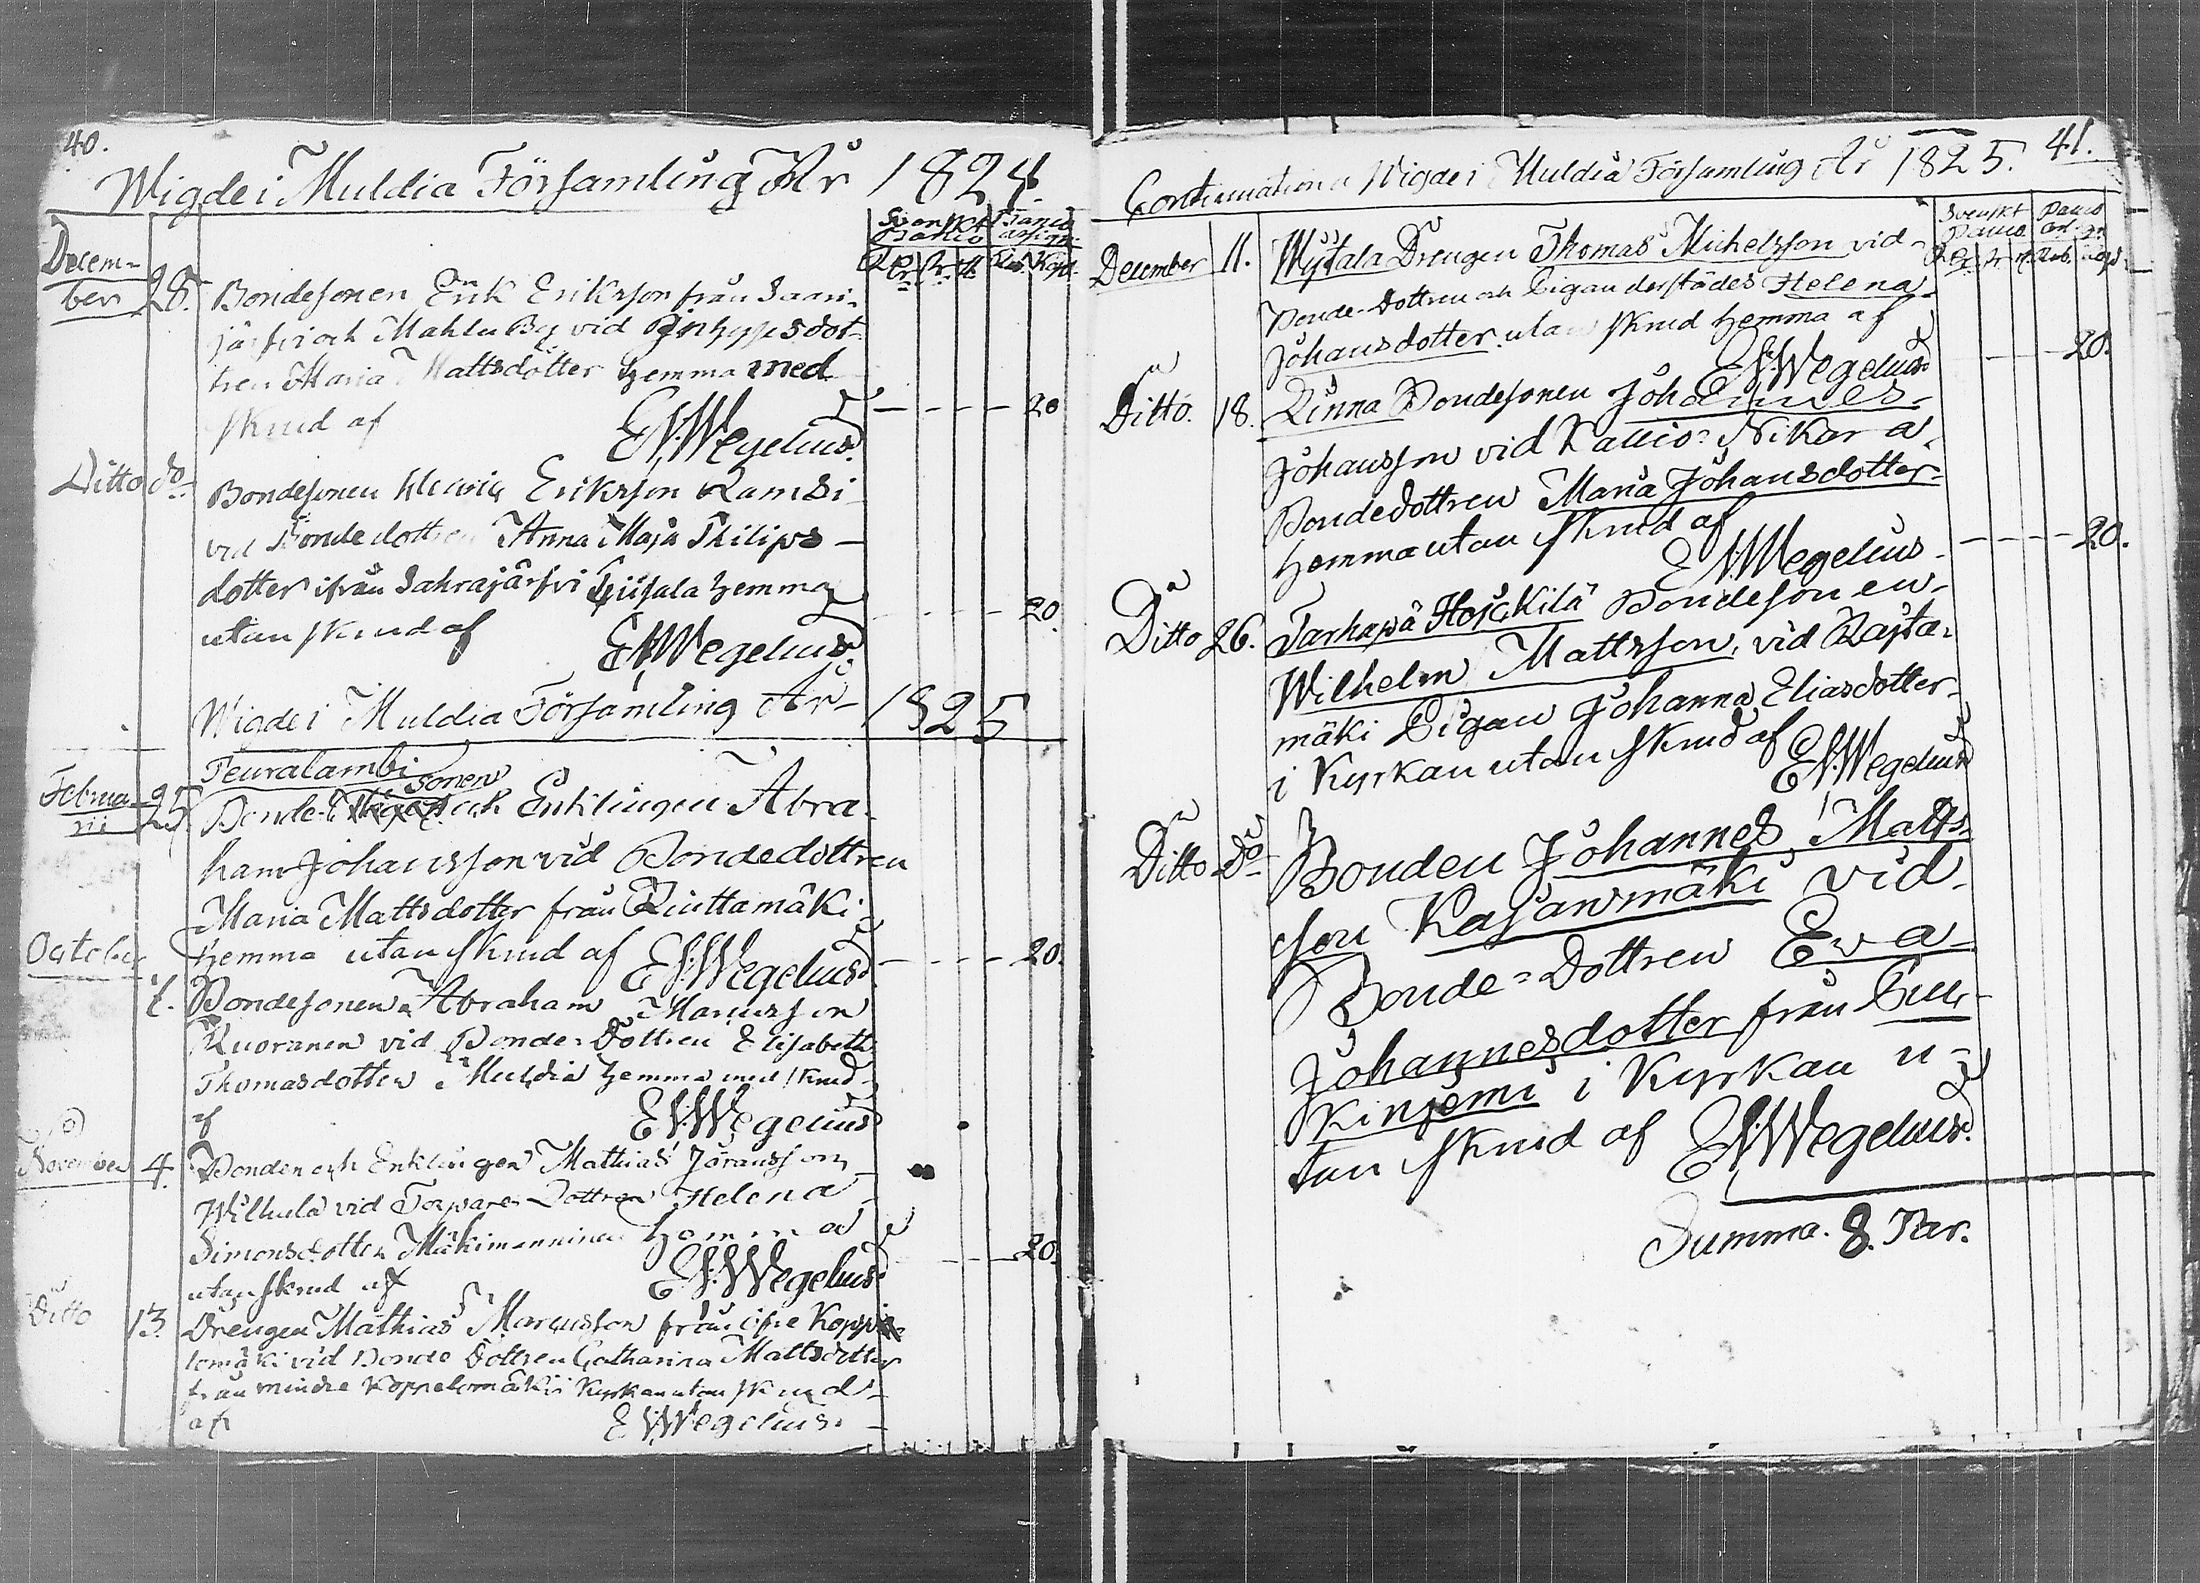 40.
Wigde i Muldia Församling År 1824.
Svenskt Banco Banco assign:
Decem-
ber 28. Bondesonen Erik Eriksson från Saari-
järfvi och Mahlu By vid
tren Maria Mattsdotter hemma med
skrud af EN:Wegelius. 20
Ditto do. Bondesonen Eriksson Ramsi
vid Bondedottren Anna Maja Philips-
dotter ifrån Sahrajärfvi hemma
utan skrud af EN:Wegelius. 20.
Wigde i Muldia Församling År 1825
Teuralambi
sonen
Februa-
rii 25. Bonde och Enklingen Abra-
ham Johansson vid Bondedottren
Maria Mattsdotter från Riuttamäki
hemma utan skrud af EN:Wegelius. 20.
October
7. Bondesonen Abraham Marcusson
Kuoranen vid Bonde-Dottren Elisabeth
Thomasdotter Muldia hemma med skrud
af EN:Wegelius
November 4. Bonden och Enklingen Mathias Jöransson
Wilhula vid Torpare-Dottren Helena
Simonsdotter Mäkimanninen hemma
utan skrud af EN:Wegelius 20.
Ditto 13. Drengen Mathias Marcusson från öfre Koppe-
lomäki vid Bonde Dottren Catharina Mattsdotter
från mindre Koppelomäki i Kyrkan utan skrud
af EN:Wegelius.
41.
Continuation Wigde i Muldia Församling År 1825.
Svenskt Banco Banco
December 11. Drengen Thomas Michelsson vid
Bonde-Dottren och Pigan derstädes Helena
Johansdotter utan skrud hemma af
EN:Wegelius. 20.
Ditto. 18. Rinna Bondesonen Johannes
Johansson vid Kallio-Nikara
Bondedottren Maria Johansdotter
hemma utan skrud af
EN:Wegelius. 20.
Ditto 26. Tarhapä Bondesonen
Wilhelm Mattsson, vid Rajta-
mäki Pigan Johanna Eliasdotter
i Kyrkan utan skrud af
EN:Wegelius
Ditto Do Bonden Johannes Matts-
son Kasanmäki vid
Bonde-Dottren Eva
Johannesdotter från
i Kyrkan u-
tan skrud af EN:Wegelius.
Summa. 8. Par.